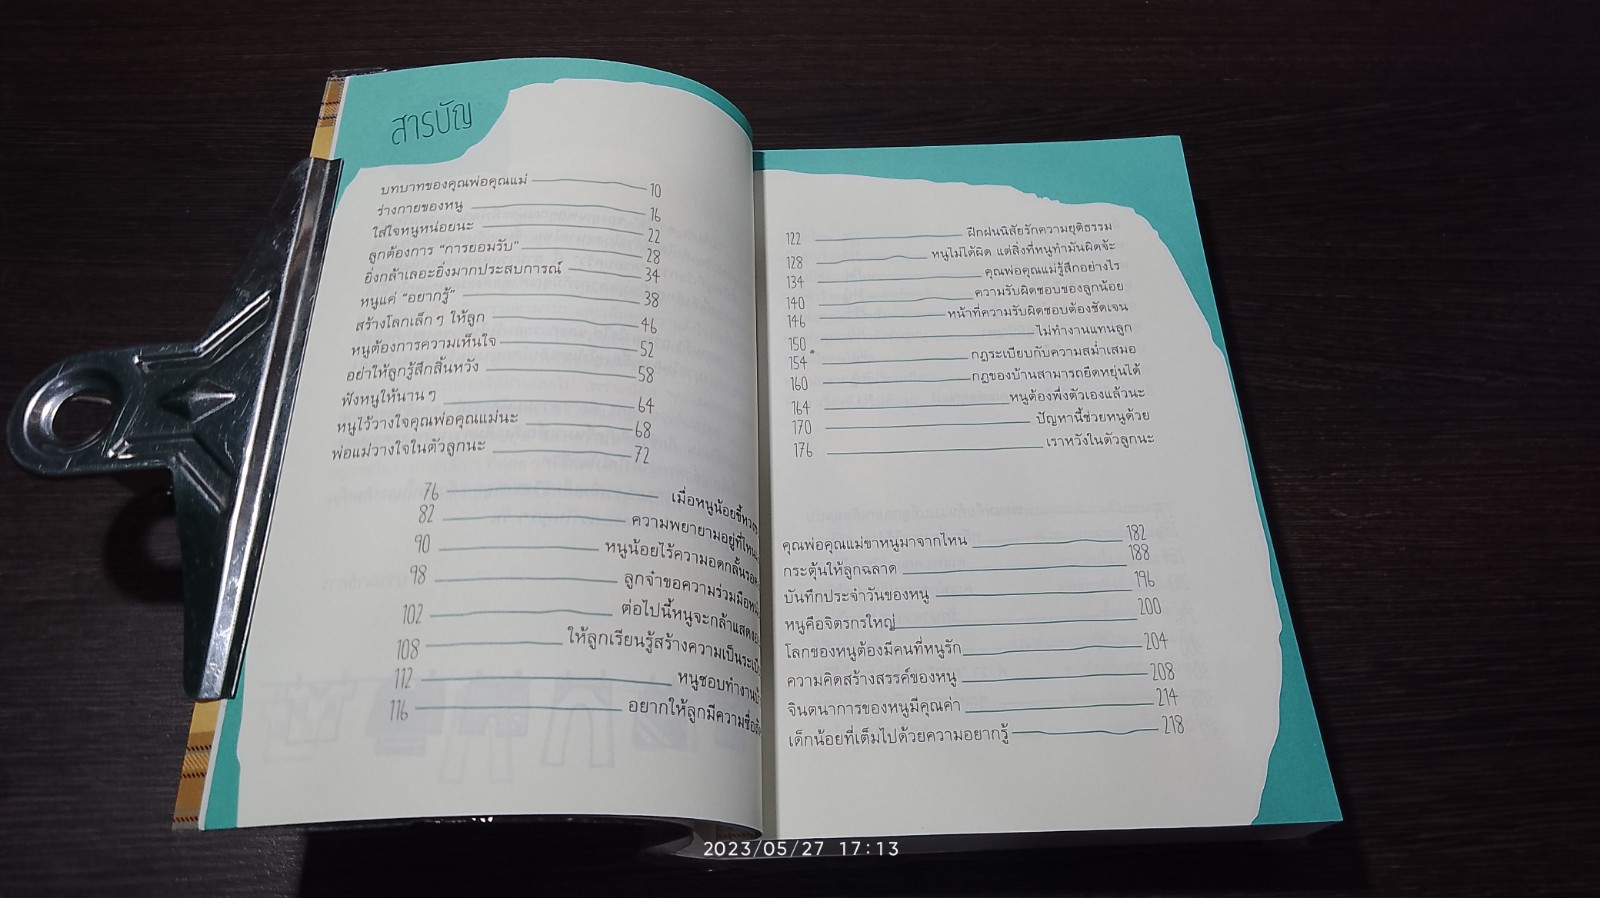 สารบัญ
บทบาทของคุณพ่อคุณแม่ 10
ร่างกายของหนู 16
ใส่ใจหนูหน่อยนะ 22
ลูกต้องการ “การยอมรับ” 28
ยิ่งกล้าเลอะยิ่งมากประสบการณ์ 34
หนูแค่ “อยากรู้” 38
สร้างโลกเล็กๆ ให้ลูก 46
หนูต้องการความเห็นใจ 52
อย่าให้ลูกรู้สึกสิ้นหวัง 58
ฟังหนูให้นานๆ 64
หนูไว้วางใจคุณพ่อคุณแม่นะ 68
พ่อแม่วางใจในตัวลูกนะ 72
76 เมื่อหนูน้อยขี้หวง
82 ความพยายามอยู่ที่ไหน
90 หนูน้อยไร้ความอดกลั้น
98 ลูกจ๋าขอความร่วมมือ
102 ต่อไปนี้หนูจะกล้าแสดง
108 ให้ลูกเรียนรู้สร้างความเป็น
112 หนูชอบทำงาน
116 อยากให้ลูกมีความ
122 ฝึกฝนนิสัยรักความยุติธรรม
128 หนูไม่ได้ผิด แต่สิ่งที่หนูทำมันผิดจ้ะ
134 คุณพ่อคุณแม่รู้สึกอย่างไร
140 ความรับผิดชอบของลูกน้อย
146 หน้าที่ความรับผิดชอบต้องชัดเจน
150 ไม่ทำงานแทนลูก
154 กฎระเบียบกับความสม่ำเสมอ
160 กฎของบ้านสามารถยืดหยุ่นได้
164 หนูต้องพึ่งตัวเองแล้วนะ
170 ปัญหานี้ช่วยหนูด้วย
176 เราหวังในตัวลูกนะ
คุณพ่อคุณแม่ขาหนูมาจากไหน 182
กระตุ้นให้ลูกฉลาด 188
บันทึกประจำวันของหนู 196
หนูคือจิตรกรใหญ่ 200
โลกของหนูต้องมีคนที่หนูรัก 204
ความคิดสร้างสรรค์ของหนู 208
จินตนาการของหนูมีคุณค่า 214
เด็กน้อยที่เต็มไปด้วยความอยากรู้ 218
2023/05/27 17:13